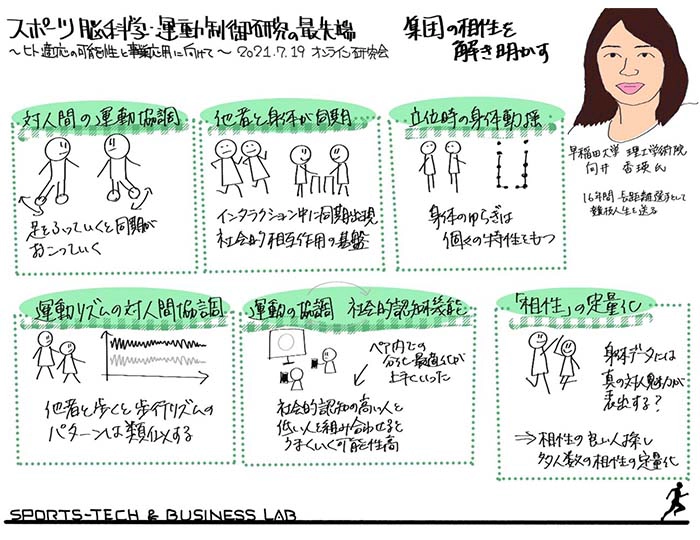 スポーツ脳科学・運動制御研究の最先端
〜ヒト適応の可能性と事業応用に向けて〜 2021.7.19 オンライン研究会
集団の相性を
解き明かす
早稲田大学 理工学術院
向井 香瑛氏
16年間 長距離選手として
競技人生を送る
対人間の運動協調
足をふっていくと同期が
おこっていく
他者と身体が同期
インタラクション中に同期出現
社会的相互作用の基盤
立位時の身体動揺
身体のゆらぎは
個々の特性をもつ
運動リズムの対人間協調
他者と歩くと歩行リズムの
パターンは類似する
運動の協調 社会的認知機能
ペア内での
分化・最適化が
上手くいった
社会的認知の高い人と
低い人を組み合わせると
うまくいく可能性高
「相性」の定量化
身体データには
真の対人魅力が
表出する?
⇒相性の良い人探し
多人数の相性の定量化
SPORTS-TECH & BUSINESS LAB